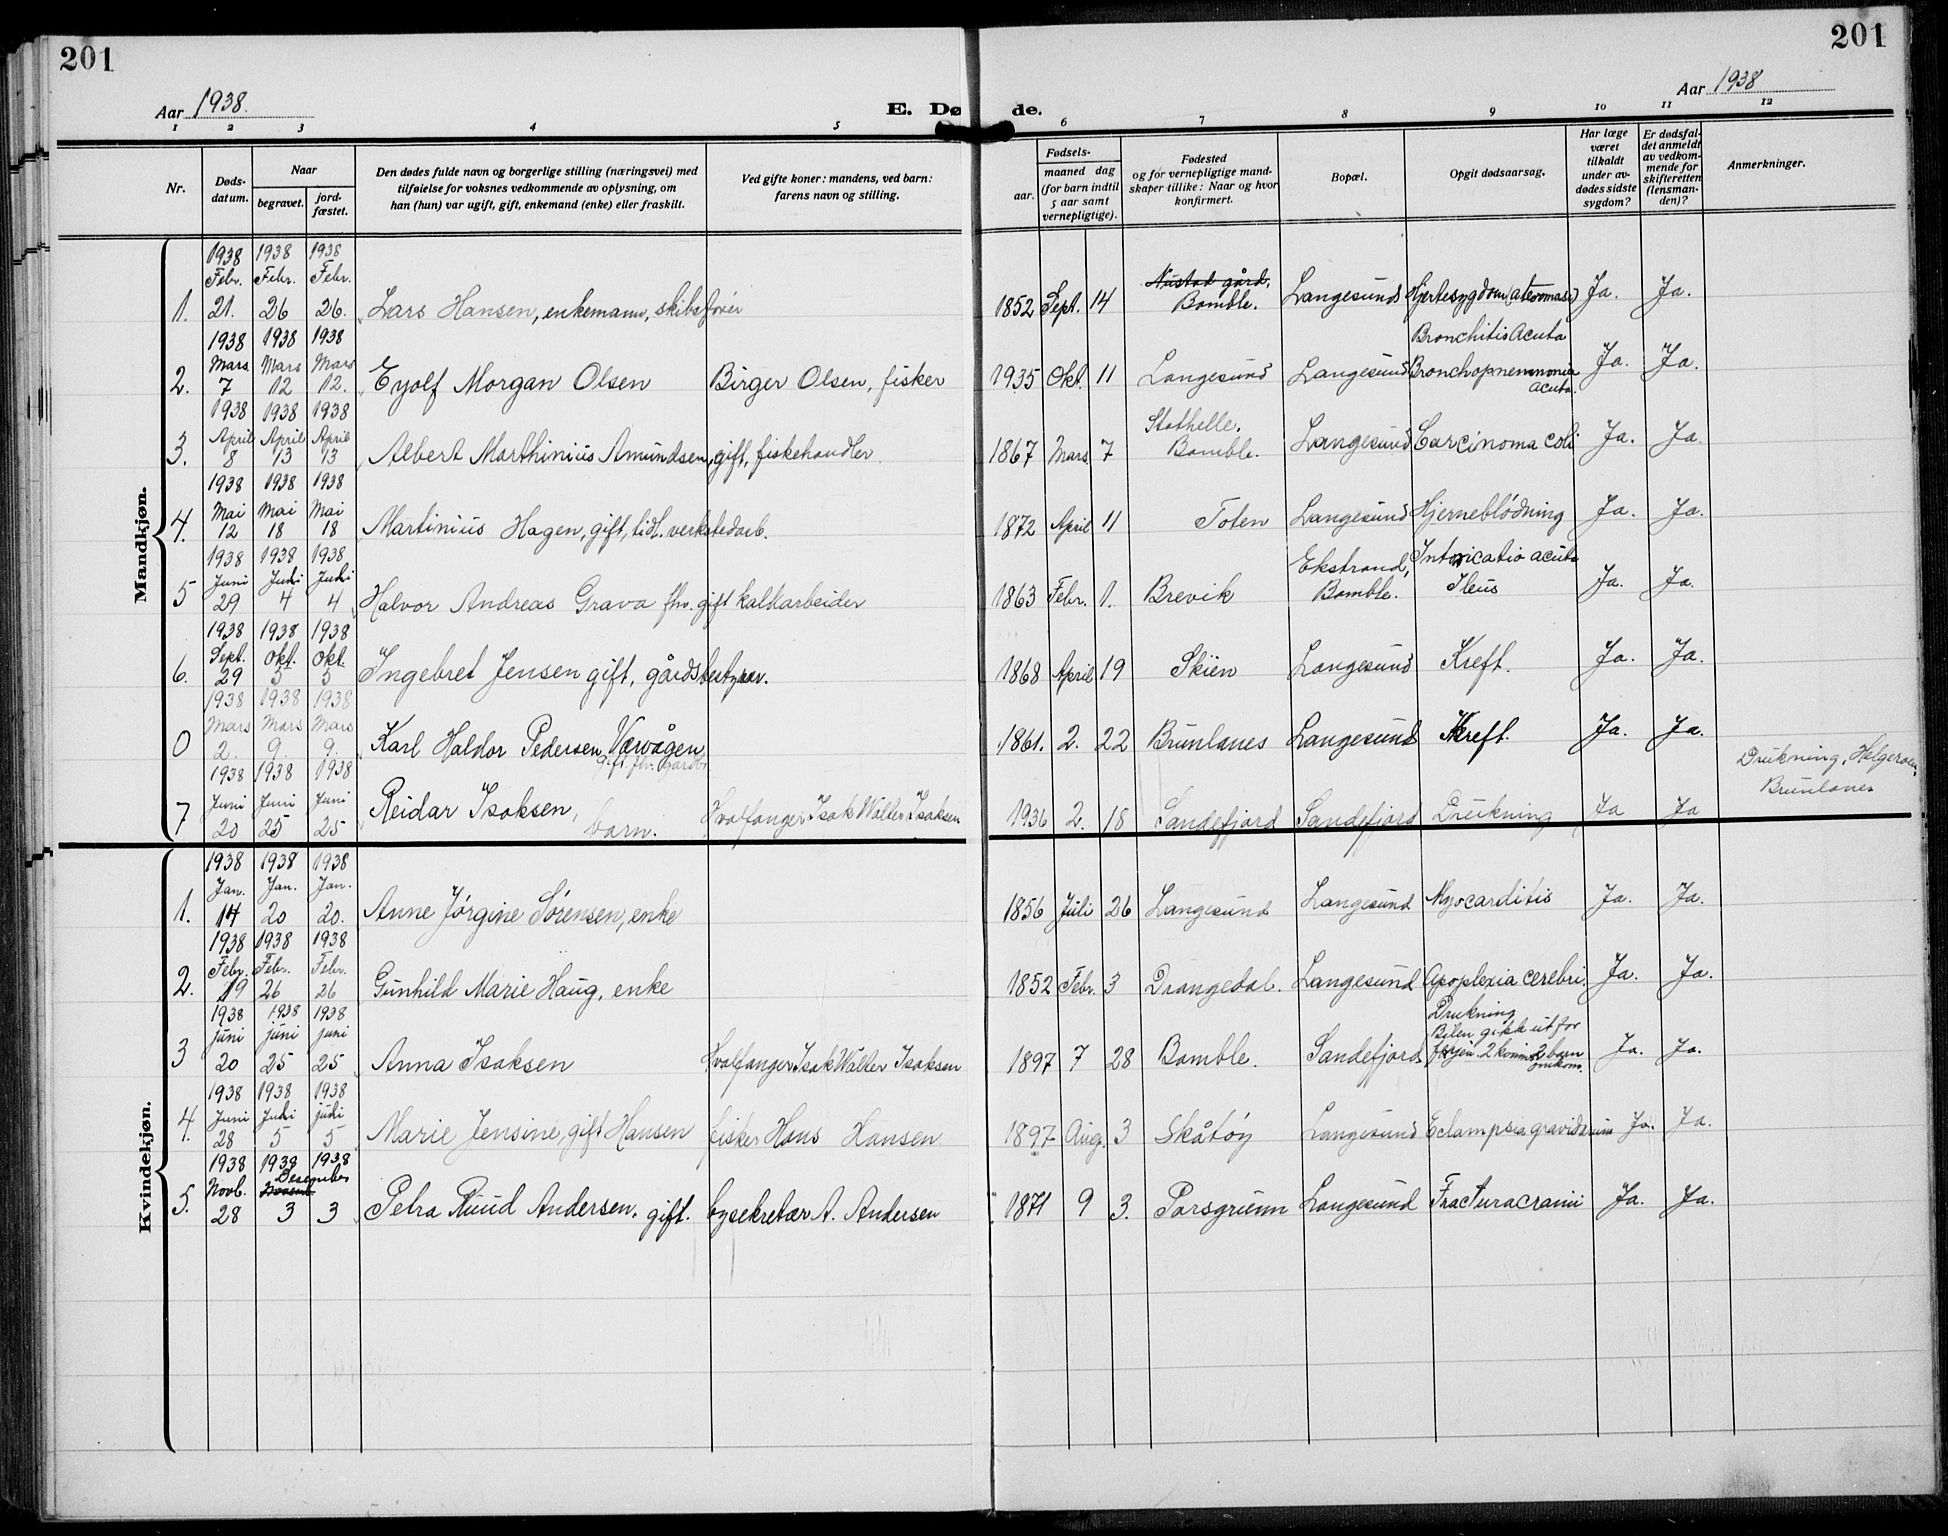 201
201
Aar 1938.
E. Dø de.
Aar 1938
1 2 3 4 5 6 7 8 9 10 11 12
Nr.
Døds-
datum.
Naar
begravet.
jord-
fæstet.
Den dødes fulde navn og borgerlige stilling (næringsvei) med
tilføielse for voksnes vedkommende av oplysning, om
han (hun) var ugift, gift, enkemand (enke) eller fraskilt.
Ved gifte koner: mandens, ved barn:
farens navn og stilling.
Fødsels-
aar.
maaned dag
(for barn indtil
5 aar samt
vernepligtige).
Fødested
og for vernepligtige mand-
skaper tillike: Naar og hvor
konfirmert.
Bopæl.
Opgit dødsaarsag.
Har læge
været
tilkaldt
under av-
dødes sidste
sygdom?
Er dødsfal-
det anmeldt
av vedkom-
mende for
skifteretten
(lensman-
den)?
Anmerkninger.
Mandkjøn.
1938 1938 1938
Febr. Febr. Febr.
Nustad gård,
1. 21. 26 26. Lars Hansen, enkemann, skibsfører 1852 Sept. 14 Bamble. Langesund Hjertesygdom (ateromasi) Ja. Ja.
1938 1938 1938 Bronchitis Acuta
Mars Mars Mars
2. 7 12 12. Eyolf Morgan Olsen Birger Olsen, fisker 1935 Okt. 11 Langesund Langesund Bronchopnenmonia Ja. Ja.
acuta.
1938 1938 1938 Stathelle.
April April April
3. 8 13 13 Albert Marthinius Amundsen, gift, fiskehandler. 1867 Mars 7 Bamble. Langesund Carcinoma coli Ja. Ja.
1938 1938 1938
Mai Mai Mai
4. 12 18 18 Martinius Hagen, gift, tidl. verkstedarb. 1872 April 11 Toten Langesund Hjerneblödning Ja. Ja.
1938 1938 1938 Ekstrand, Intoxicatio acuta
Juni Juli Juli
5 29 4 4 Halvor Andreas Grava fhv. gift kaltarbeider 1863 Febr. 1. Brevik Bamble. Ileus Ja. Ja.
1938 1938 1938
Sept. Okt. Okt.
6. 29 5 5 Ingebret Jensen gift, gårdsbestyrer. 1868 April 19 Skien Langesund Kreft. Ja. Ja.
1938 1938 1938
Mars Mars Mars
0 2. 9. 9. Karl Haldor Pedersen Værvågen 1861. 2. 22 Brunlanes Langesund Kreft. Ja. Ja.
gift. fhv. gårdbr.
1938 1938 1938 Drukning, Helgeroen,
Juni Juni Juni Brunlanes
7 20 25 25 Reidar Isaksen, barn. Hvalfanger Isak Walter Isaksen 1936 2. 18 Sandefjord Sandefjord Drukning Ja Ja
Kvindekjøn.
1938 1938 1938
Jan. Jan. Jan.
1. 14 20 20. Anne Jørgine Sørensen, enke 1856 Juli 26 Langesund Langesund Myocarditis Ja. Ja.
1938 1938 1938
Febr. Febr. Febr.
2. 19 26 26 Gunhild Marie Haug, enke 1852 Febr. 3 Drangedal. Langesund Apoplexia cerebri. Ja. Ja.
1938 1938 1938 Drukning
juni juni juni Bilen gikk ut for
3 20 25 25 Anna Isaksen Hvalfanger Isak Walter Isaksen 1897 7 28 Bamble. Sandefjord 2 barn Ja. Ja.
omkom.
1938 1938 1938
Juni Juli juli
4. 28 5 5 Marie Jensine, gift Hansen fisker Hans Hansen 1897 Aug. 3 Skåtöy Langesund Eclampsia gravidarum Ja. Ja.
1938 1938 1938
Novb. Novemb. Desember
5. 28 3 3 Petra Ruud Andersen. gift. bysekretær A. Andersen 1871 9 3. Porsgrunn Langesund Fractura cranii Ja. Ja.